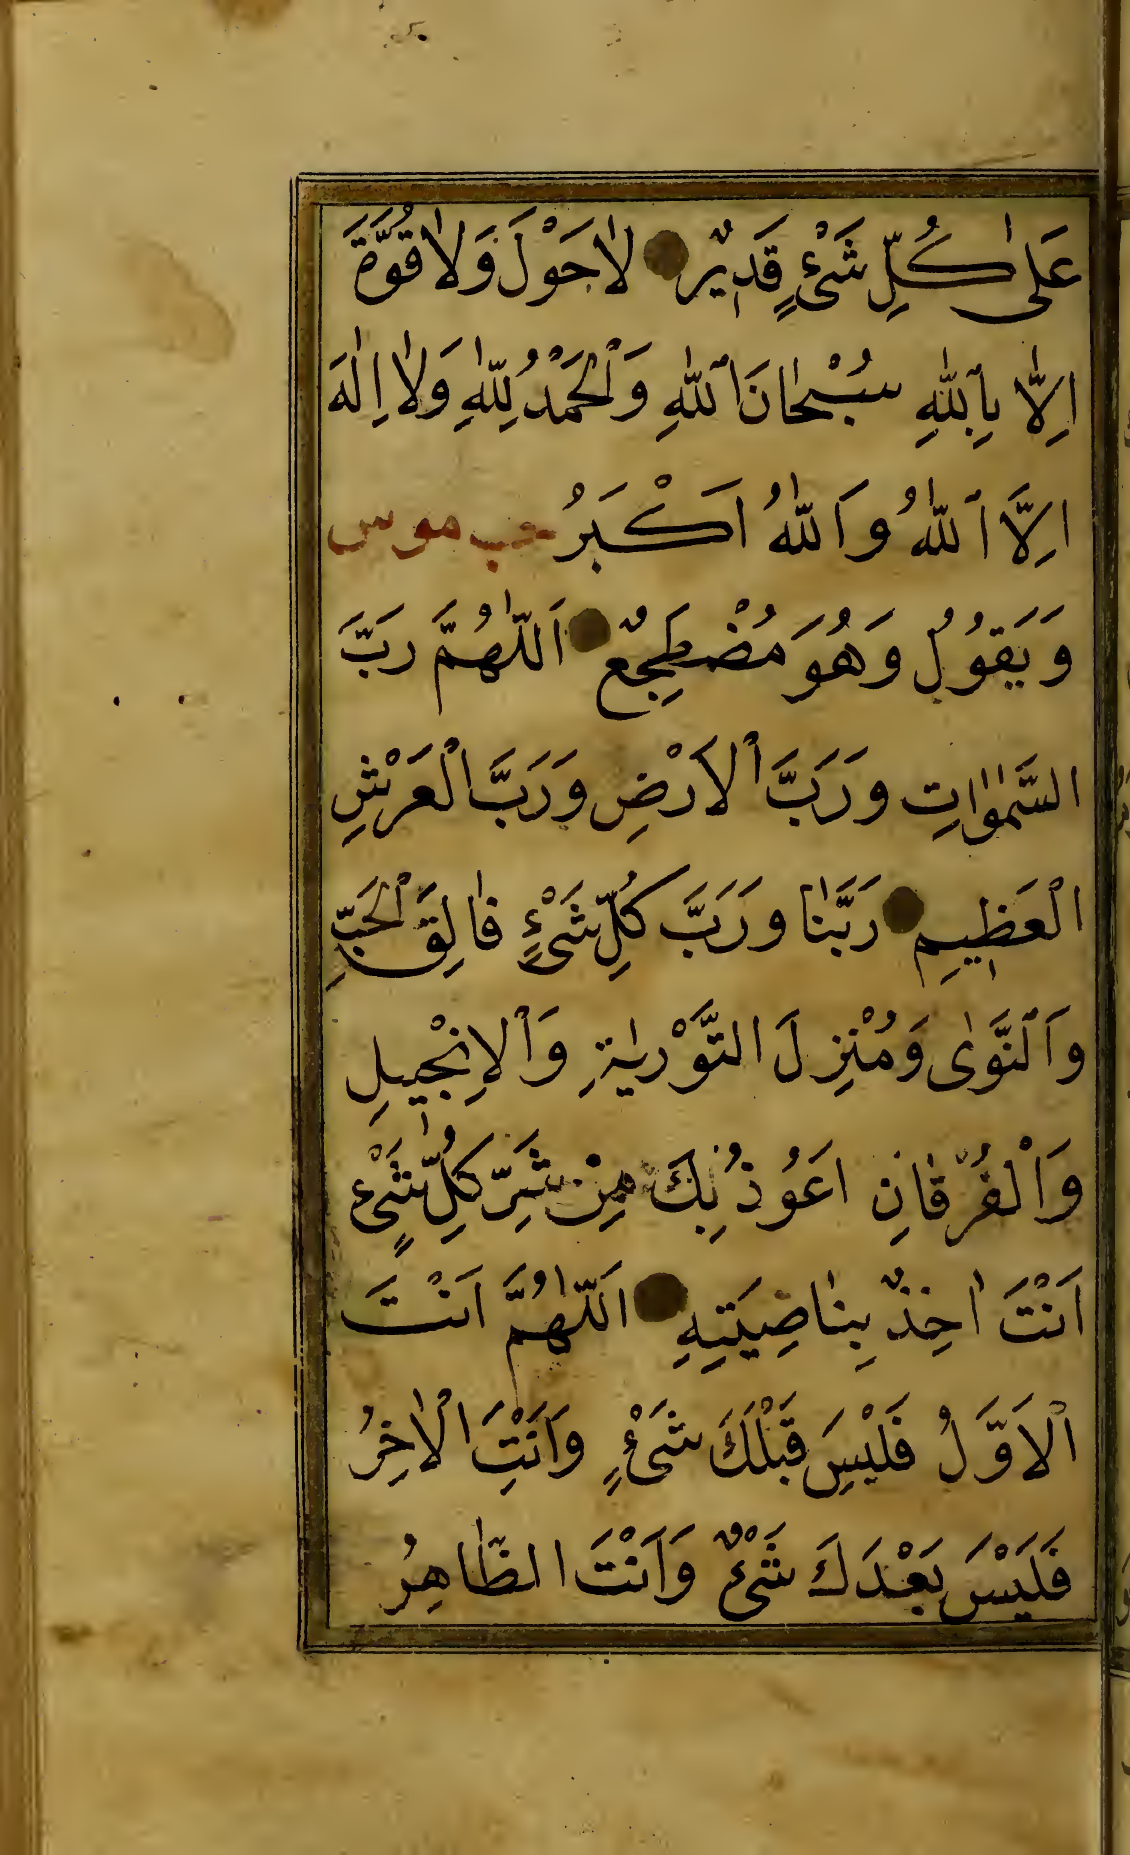 عَلٰى كُلِّ شَىْءٍ قَدٖيرٌ لٰا حَوْلَ وَلٰا قُوَّةَ
اِلّٰا بِاللّٰهِ سُبْحٰانَ اللّٰهِ وَالْحَمْدُ لِلّٰهِ وَلٰا اِلٰهَ
اِلَّا اللّٰهُ وَاللّٰهُ اَكْبَرُ حب مو س
وَيَقُولُ وَهُوَ مُضْطَجِعٌ اَللّٰهُمَّ رَبَّ
السَّمٰوٰاتِ وَرَبَّ الْاَرْضِ وَرَبَّ الْعَرْشِ
الْعَظٖيمِ رَبَّنٰا وَرَبَّ كُلِّ شَىْءٍ فٰالِقَ الْحَبِّ
وَالنَّوٰى وَمُنْزِلَ التَّوْرٰيةِ وَالْاِنْجٖيلِ
وَالْفُرْقٰانِ اَعُوذُ بِكَ مِنْ شَرِّ كُلِّ شَىْءٍ
اَنْتَ اٰخِذٌ بِنٰاصِيَتِهِ اَللّٰهُمَّ اَنْتَ
الْاَوَّلُ فَلَيْسَ قَبْلَكَ شَىْءٍ وَاَنْتَ الْاٰخِرُ
فَلَيْسَ بَعْدَكَ شَىْءٌ وَاَنْتَ الظّٰاهِرُ